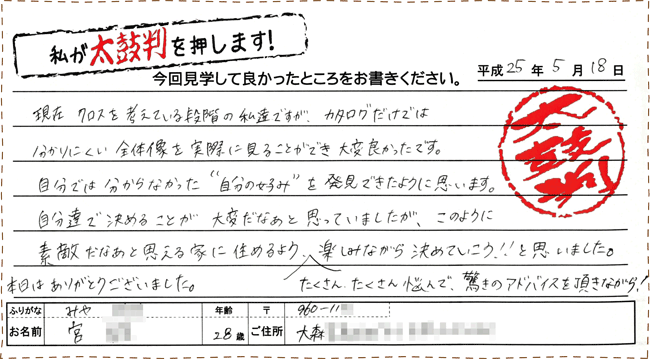 私が太鼓判を押します!
今回見学して良かったところをお書きください。
平成25年5月18日
太鼓判
現在 クロスを考えている段階の私達ですが、カタログだけでは
分かりにくい 全体像を実際に見ることができ大変良かったです。
自分では分からなかった "自分の好み" を発見できたように思います。
自分達で決めることが 大変だなあと思っていましたが、このように
素敵だなあと思える家に住めるよう、楽しみながら決めていこう!!と思いました。
たくさん、たくさん悩んで、驚きのアドバイスを頂きながら!
本日はありがとうございました。
ふりがな みや 年齢 〒 960-11
お名前 宮 28歳 ご住所 大森